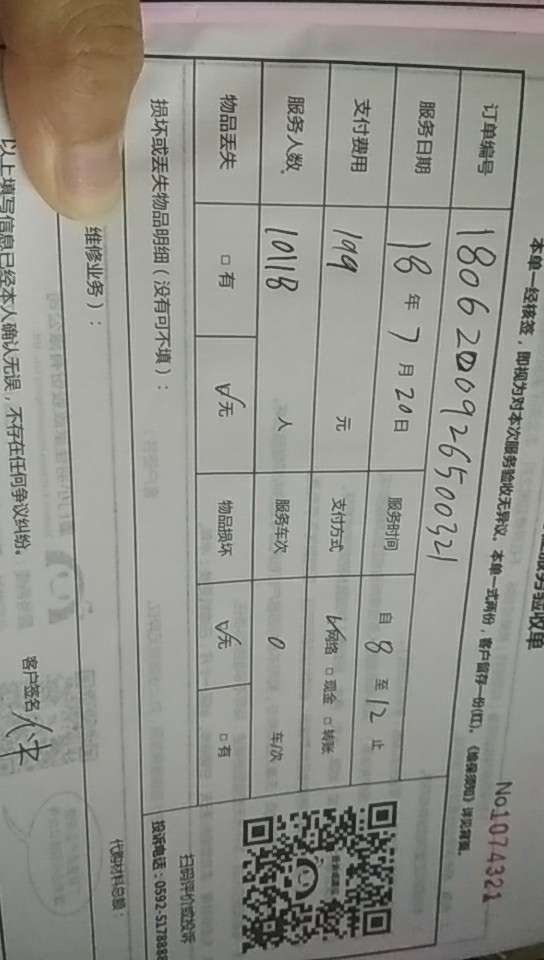 服务验收单
No1074321
本单一经核签，即视为对本次服务验收无异议。本单一式两份，客户留存一份(红)。《维保须知》详见背面。
订单编号 1806200926500321
服务日期 18 年 7 月 20 日 服务时间 自 8 至 12 止
支付费用 199 元 支付方式 ☑网络 □现金 □转账
服务人数 10118 人 服务车次 0 车/次
物品丢失 □有 ☑无 物品损坏 ☑无 □有
损坏或丢失物品明细（没有可不填）：
扫码评价或投诉
投诉电话：0592-5178888
维修业务）：
代购材料总额：
以上填写信息已经本人确认无误，不存在任何争议纠纷。
客户签名